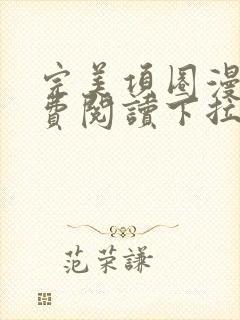 完美項圈漫
費閱讀下拉
范荣謙